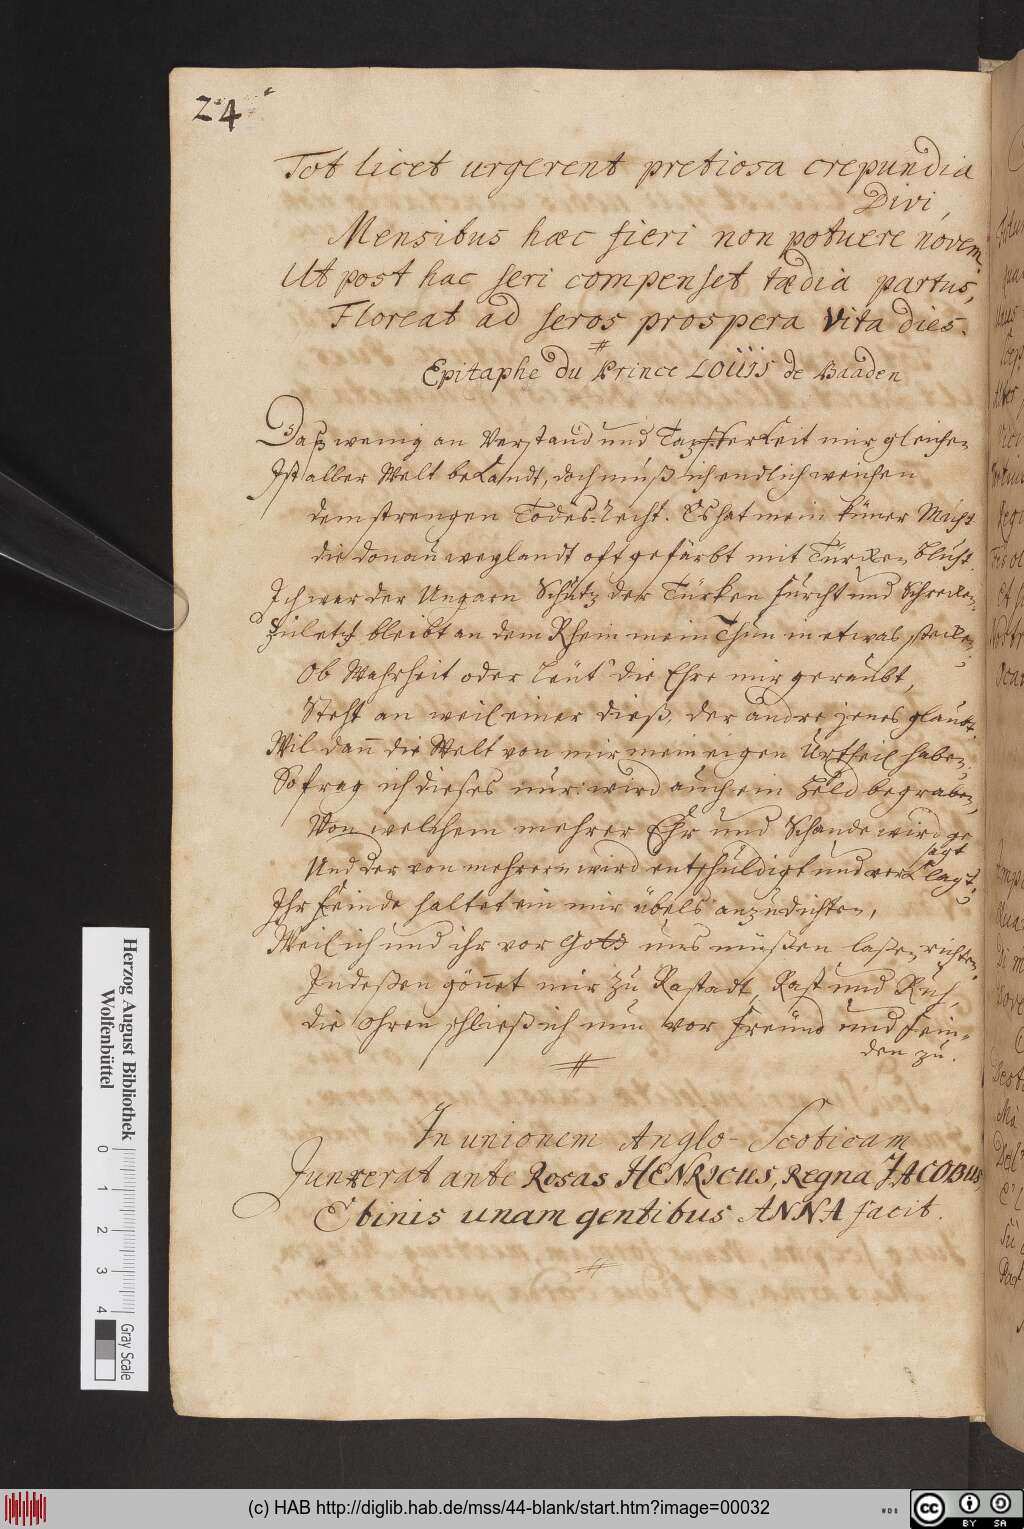 24
Tot licet urgerent pretiosa crepundia
Divi,
Mensibus hæc fieri non potuere novem.
Ut post hac seri compenset tædia partus,
Floreat ad seros prospera vita dies.
Epitaphe du Prince LOÜIS de Baaden
Daß wenig an Verstand und Tapfferkeit mir gleichen
Ist aller Welt bekandt, doch muß ich endlich weichen
dem strengen Todes-Recht. Es hat mein küner Muht
die Donau weylandt oft gefärbt mit Türcken Bluht.
Ich war der Ungarn Schutz der Türken Furcht und Schrecken,
Zuletzt bleibt an dem Rhein mein Thun in etwas stecken;
Ob Wahrheit oder Leut die Ehre mir geraubt,
Steht an weil einer dieß, der andre jenes glaubt.
Wil dañ die Welt von mir mein eigen Urtheil haben;
So frag ich dieses nur: wird auch ein Held begraben,
Von welchem mehrer Ehr und Schande wird ge
sagt
Und der von mehrern wird entschuldigt und verklagt;
Ihr Feinde haltet ein mir übels anzudichten,
Weil ich und ihr vor Gott uns müßen laßen richten.
Indeßen göñet mir zu Rastadt, Rast und Ruh,
die Ohren schließ ich nun vor Freund und Fein-
den zu.
In unionem Anglo-Scoticam
Junxerat ante Rosas HENRICUS, Regna JACOBUS,
E binis unam gentibus ANNA facit.
Herzog August Bibliothek
Wolfenbüttel
0 1 2 3 4
Gray Scale
(c) HAB http://diglib.hab.de/mss/44-blank/start.htm?image=00032
WDB
cc BY SA